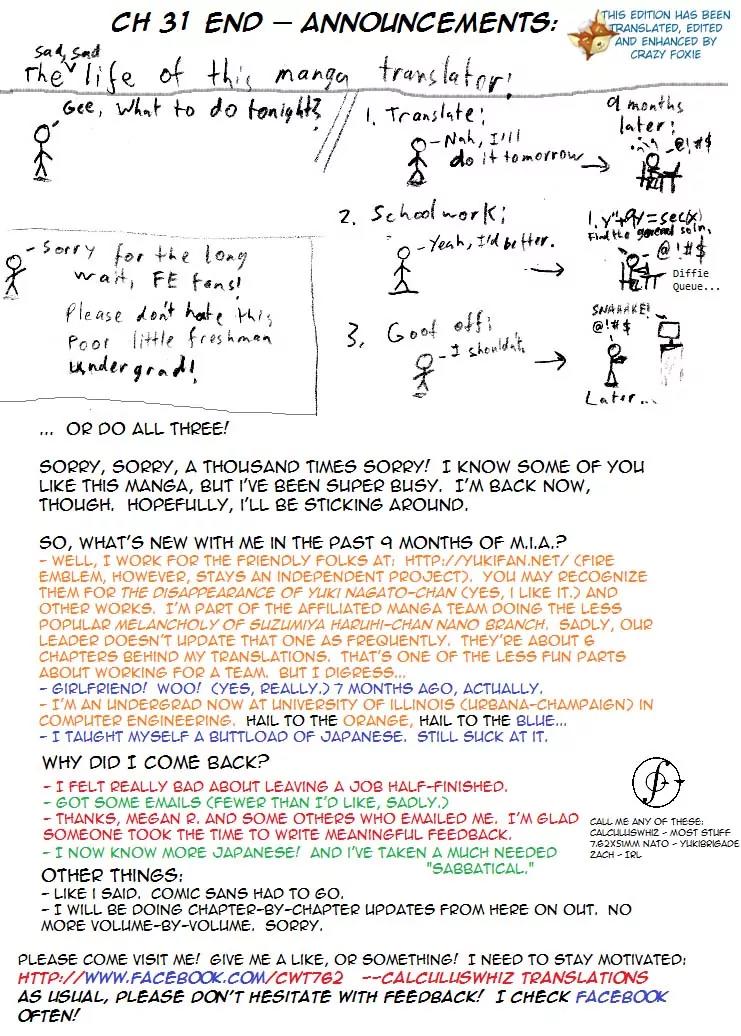 CH 31 END – ANNOUNCEMENTS:
THIS EDITION HAS BEEN
TRANSLATED, EDITED
AND ENHANCED BY
CRAZY FOXIE
sad, sad
The life of this manga translator!
Gee, what to do tonight?
1. Translate:
-Nah, I'll
do it tomorrow
9 months
later:
@!#$
2. Schoolwork:
-Yeah, I'd better.
1. y''+9y=sec(x)
Find the general soln.
@!#$
Diffie
Queue...
3. Goof off:
-I shouldn't.
SNAAAKE!
@!#$
Later...
-Sorry for the long
wait, FE fans!
Please don't hate this
poor little freshman
undergrad!
... OR DO ALL THREE!
SORRY, SORRY, A THOUSAND TIMES SORRY! I KNOW SOME OF YOU
LIKE THIS MANGA, BUT I'VE BEEN SUPER BUSY. I'M BACK NOW,
THOUGH. HOPEFULLY, I'LL BE STICKING AROUND.
SO, WHAT'S NEW WITH ME IN THE PAST 9 MONTHS OF M.I.A.?
- WELL, I WORK FOR THE FRIENDLY FOLKS AT: HTTP://YUKIFAN.NET/ (FIRE
EMBLEM, HOWEVER, STAYS AN INDEPENDENT PROJECT). YOU MAY RECOGNIZE
THEM FOR THE DISAPPEARANCE OF YUKI NAGATO-CHAN (YES, I LIKE IT.) AND
OTHER WORKS. I'M PART OF THE AFFILIATED MANGA TEAM DOING THE LESS
POPULAR MELANCHOLY OF SUZUMIYA HARUHI-CHAN NANO BRANCH. SADLY, OUR
LEADER DOESN'T UPDATE THAT ONE AS FREQUENTLY. THEY'RE ABOUT 6
CHAPTERS BEHIND MY TRANSLATIONS. THAT'S ONE OF THE LESS FUN PARTS
ABOUT WORKING FOR A TEAM. BUT I DIGRESS...
- GIRLFRIEND! WOO! (YES, REALLY.) 7 MONTHS AGO, ACTUALLY.
- I'M AN UNDERGRAD NOW AT UNIVERSITY OF ILLINOIS (URBANA-CHAMPAIGN) IN
COMPUTER ENGINEERING. HAIL TO THE ORANGE, HAIL TO THE BLUE...
- I TAUGHT MYSELF A BUTTLOAD OF JAPANESE. STILL SUCK AT IT.
WHY DID I COME BACK?
- I FELT REALLY BAD ABOUT LEAVING A JOB HALF-FINISHED.
- GOT SOME EMAILS (FEWER THAN I'D LIKE, SADLY.)
- THANKS, MEGAN R. AND SOME OTHERS WHO EMAILED ME. I'M GLAD
SOMEONE TOOK THE TIME TO WRITE MEANINGFUL FEEDBACK.
- I NOW KNOW MORE JAPANESE! AND I'VE TAKEN A MUCH NEEDED
"SABBATICAL."
CALL ME ANY OF THESE:
CALCULUSWHIZ - MOST STUFF
7.62X51MM NATO - YUKIBRIGADE
ZACH - IRL
OTHER THINGS:
- LIKE I SAID. COMIC SANS HAD TO GO.
- I WILL BE DOING CHAPTER-BY-CHAPTER UPDATES FROM HERE ON OUT. NO
MORE VOLUME-BY-VOLUME. SORRY.
PLEASE COME VISIT ME! GIVE ME A LIKE, OR SOMETHING! I NEED TO STAY MOTIVATED:
HTTP://WWW.FACEBOOK.COM/CWT762 --CALCULUSWHIZ TRANSLATIONS
AS USUAL, PLEASE DON'T HESITATE WITH FEEDBACK! I CHECK FACEBOOK
OFTEN!